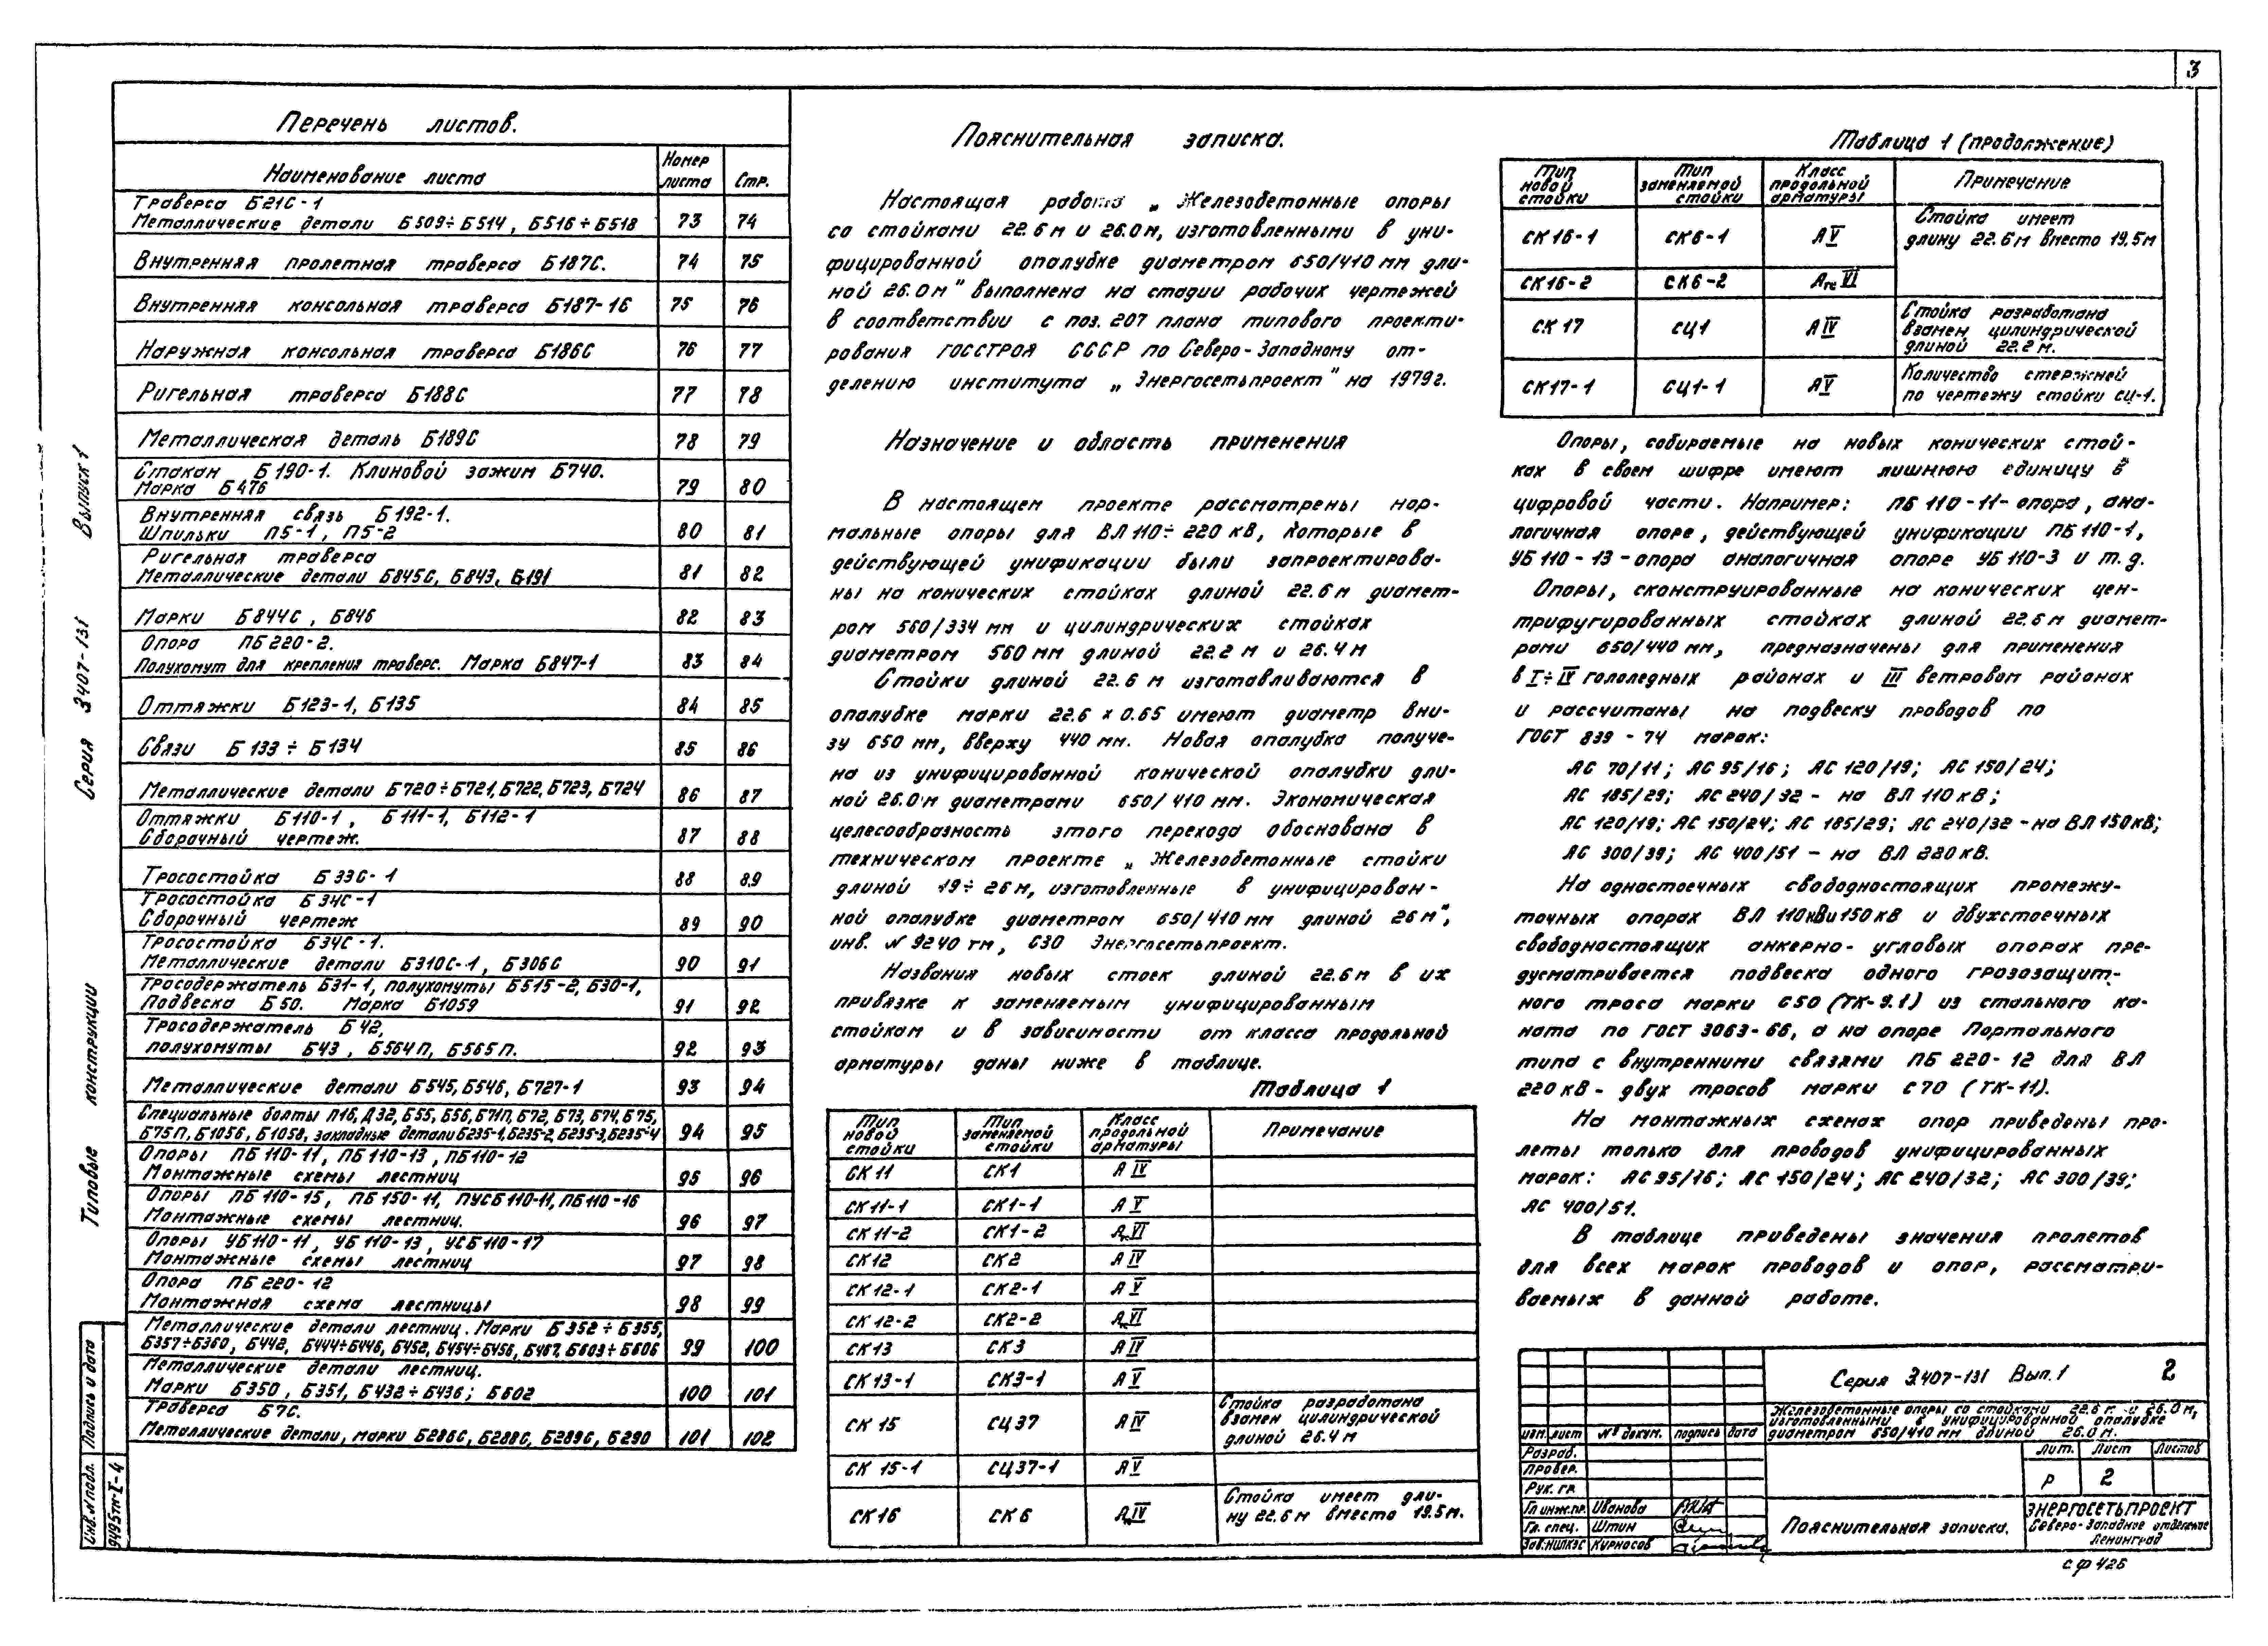 3
Перечень листов.
Наименование листа
Номер листа
Стр.
Траверса Б21С-1
Металлические детали Б509÷Б514, Б516÷Б518 73 74
Внутренняя пролетная траверса Б187С. 74 75
Внутренняя консольная траверса Б187-16 75 76
Наружная консольная траверса Б186С 76 77
Ригельная траверса Б188С 77 78
Металлическая деталь Б189С 78 79
Стакан Б190-1. Клиновой зажим Б740.
Марка Б476 79 80
Внутренняя связь Б192-1.
Шпильки П5-1, П5-2 80 81
Ригельная траверса
Металлические детали Б845С, Б843, Б191 81 82
Марки Б844С, Б846 82 83
Опора ПБ220-2.
Полухомут для крепления траверс. Марка Б847-1 83 84
Оттяжки Б123-1, Б135 84 85
Связи Б133 ÷ Б134 85 86
Металлические детали Б720÷Б721, Б722, Б723, Б724 86 87
Оттяжки Б110-1, Б111-1, Б112-1
Сборочный чертеж. 87 88
Тросостойка Б33С-1 88 89
Тросостойка Б34С-1
Сборочный чертеж 89 90
Тросостойка Б34С-1.
Металлические детали Б310С-1, Б306С 90 91
Тросодержатель Б31-1, полухомуты Б515-2, Б30-1,
Подвеска Б50. Марка Б1059 91 92
Тросодержатель Б42,
полухомуты Б43, Б564П, Б565П. 92 93
Металлические детали Б545, Б546, Б727-1 93 94
Специальные болты П16, Д32, Б55, Б56, Б71П, Б72, Б73, Б74, Б75,
Б75П, Б1056, Б1058, закладные детали Б235-1, Б235-2, Б235-3, Б235-4 94 95
Опоры ПБ110-11, ПБ110-13, ПБ110-12
Монтажные схемы лестниц 95 96
Опоры ПБ110-15, ПБ150-11, ПУСБ110-11, ПБ110-16
Монтажные схемы лестниц. 96 97
Опоры УБ110-11, УБ110-13, УСБ110-17
Монтажные схемы лестниц 97 98
Опора ПБ220-12
Монтажная схема лестницы 98 99
Металлические детали лестниц. Марки Б352÷Б355,
Б357÷Б360, Б442, Б444÷Б446, Б452, Б454÷Б456, Б467, Б603÷Б606 99 100
Металлические детали лестниц.
Марки Б350, Б351, Б432÷Б436; Б602 100 101
Траверса Б7С.
Металлические детали, марки Б286С, Б288С, Б289С, Б290 101 102
Пояснительная записка.
Настоящая работа „Железобетонные опоры
со стойками 22.6м и 26.0м, изготовленными в уни-
фицированной опалубке диаметром 650/410 мм дли-
ной 26.0м" выполнена на стадии рабочих чертежей
в соответствии с поз. 207 плана типового проекти-
рования ГОССТРОЯ СССР по Северо-Западному от-
делению института „Энергосетьпроект" на 1979г.
Назначение и область применения
В настоящем проекте рассмотрены нор-
мальные опоры для ВЛ 110÷220 кВ, которые в
действующей унификации были запроектирова-
ны на конических стойках длиной 22.6 м диамет-
ром 560/334 мм и цилиндрических стойках
диаметром 560 мм длиной 22.2 м и 26.4 м
Стойки длиной 22.6 м изготавливаются в
опалубке марки 22.6 х 0.65 имеют диаметр вни-
зу 650 мм, вверху 440 мм. Новая опалубка получе-
на из унифицированной конической опалубки дли-
ной 26.0 м диаметрами 650/410 мм. Экономическая
целесообразность этого перехода обоснована в
техническом проекте „Железобетонные стойки
длиной 19÷26м, изготовленные в унифицирован-
ной опалубке диаметром 650/410 мм длиной 26 м",
инв. N 9240 тм, СЗО Энергосетьпроект.
Названия новых стоек длиной 22.6м в их
привязке к заменяемым унифицированным
стойкам и в зависимости от класса продольной
арматуры даны ниже в таблице.
Таблица 1
Тип новой стойки
Тип заменяемой стойки
Класс продольной арматуры
Примечание
СК 11 СК1 А IV
СК11-1 СК1-1 А V
СК11-2 СК1-2 Ат VI
СК12 СК2 А IV
СК12-1 СК2-1 А V
СК12-2 СК2-2 Ат VI
СК13 СК3 А IV
СК13-1 СК3-1 А V
СК 15 СЦ37 А IV Стойка разработана
взамен цилиндрической
длиной 26.4 м
СК 15-1 СЦ37-1 А V
СК16 СК6 Ат IV Стойка имеет дли-
ну 22.6м вместо 19.5м.
Таблица 1 (продолжение)
Тип новой стойки
Тип заменяемой стойки
Класс продольной арматуры
Примечание
СК16-1 СК6-1 А V Стойка имеет
длину 22.6м вместо 19.5м
СК16-2 СК6-2 Ат VI
СК 17 СЦ1 А IV Стойка разработана
взамен цилиндрической
длиной 22.2 м.
СК17-1 СЦ1-1 А V Количество стержней
по чертежу стойки СЦ-1.
Опоры, собираемые на новых конических стой-
ках в своем шифре имеют лишнюю единицу в
цифровой части. Например: ПБ 110-11- опора, ана-
логичная опоре, действующей унификации ПБ110-1,
УБ 110-13-опора аналогичная опоре УБ 110-3 и т.д.
Опоры, сконструированные на конических цен-
трифугированных стойках длиной 22.6 м диамет-
рами 650/440 мм, предназначены для применения
в I÷IV гололедных районах и III ветровом районах
и рассчитаны на подвеску проводов по
ГОСТ 839-74 марок:
АС 70/11; АС 95/16; АС 120/19; АС 150/24;
АС 185/29; АС 240/32 - на ВЛ 110 кВ;
АС 120/19; АС 150/24; АС 185/29; АС 240/32 - на ВЛ 150кВ;
АС 300/39; АС 400/51 - на ВЛ 220 кВ.
На одностоечных свободностоящих промежу-
точных опорах ВЛ 110кВи150кВ и двухстоечных
свободностоящих анкерно-угловых опорах пре-
дусматривается подвеска одного грозозащит-
ного троса марки С50 (ТК-9.1) из стального ка-
ната по ГОСТ 3063-66, а на опоре Портального
типа с внутренними связями ПБ 220-12 для ВЛ
220 кВ - двух тросов марки С70 (ТК-11).
На монтажных схемах опор приведены про-
леты только для проводов унифицированных
марок: АС 95/16; АС 150/24; АС 240/32; АС 300/39;
АС 400/51.
В таблице приведены значения пролетов
для всех марок проводов и опор, рассматри-
ваемых в данной работе.
Серия 3.407-131 Вып. 1 2
Железобетонные опоры со стойками 22.6 м и 26.0 м,
изготовленными в унифицированной опалубке
диаметром 650/410 мм длиной 26.0 м.
изм. лист № докум. подпись дата
Разраб.
Провер.
Рук. гр.
Гл инж.пр. Иванова
Гл. спец. Штин
Зав.НИЛКЭС Курносов
Пояснительная записка.
Лит. Лист Листов
Р 2
ЭНЕРГОСЕТЬПРОЕКТ
Северо-Западное отделение
Ленинград
сф 426
Типовые конструкции Серия 3.407-131 Выпуск 1
Инв. N подл. Подпись и дата
9495тм-I-4